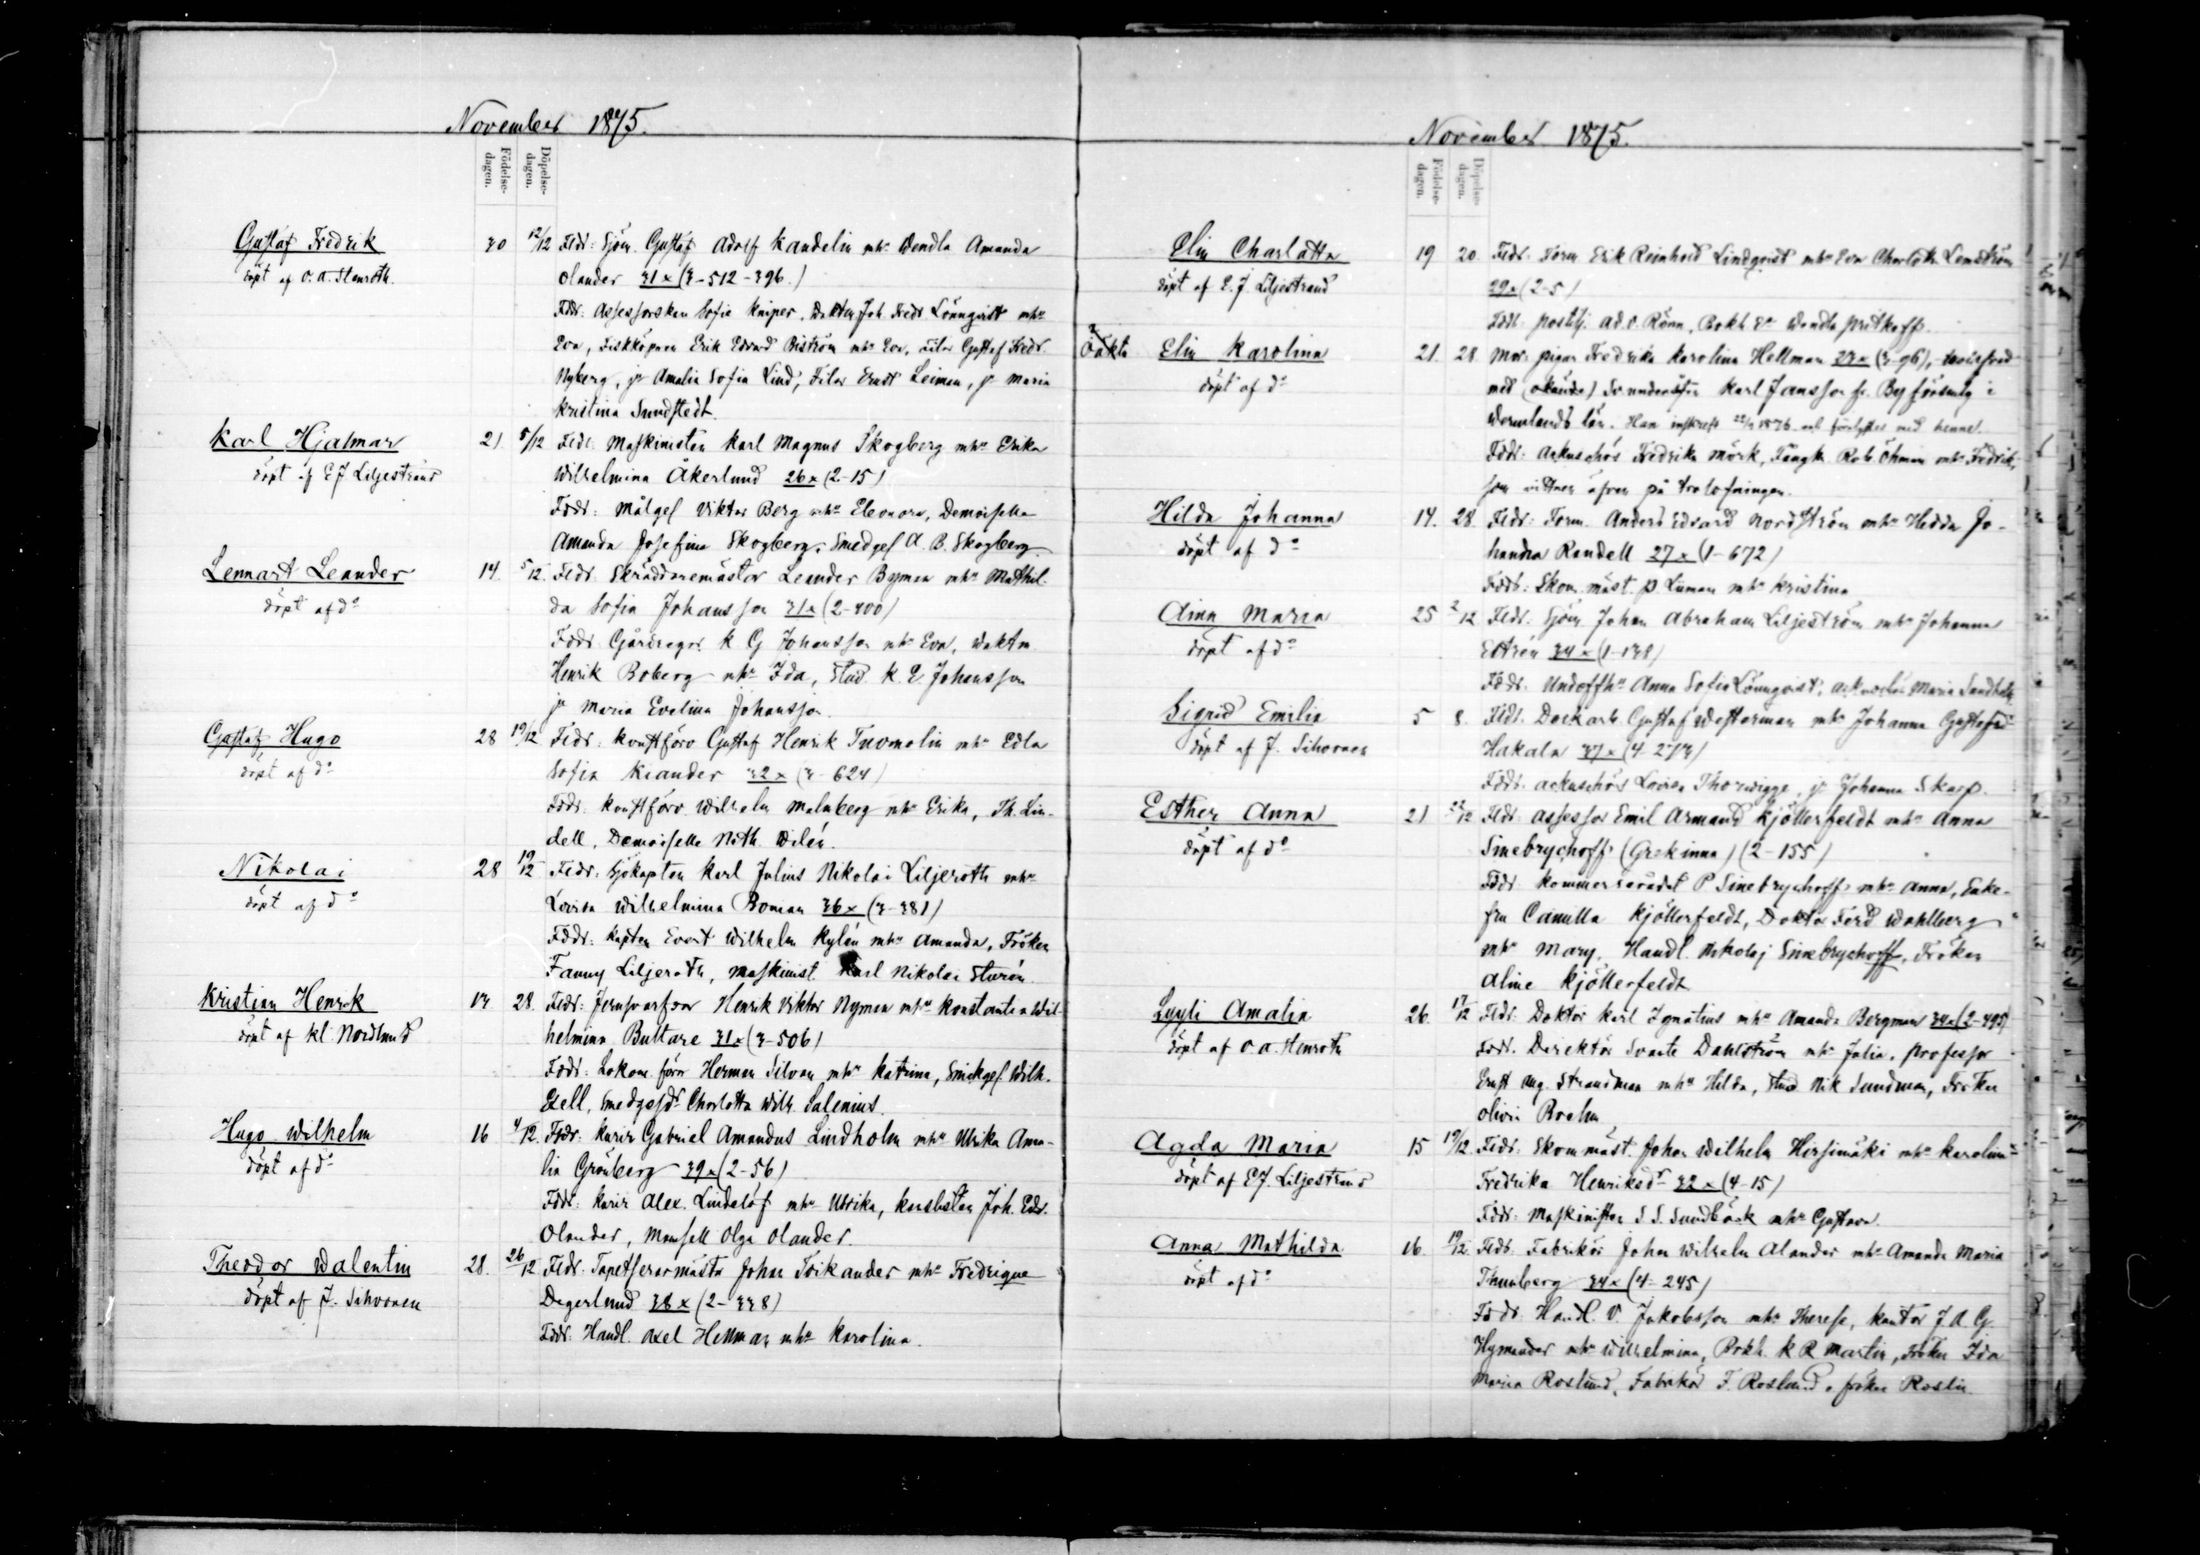 November 1875.
Födelse-dagen.
Döpelse-dagen.
Gustaf Fredrik
döpt af O. A. Stenroth.
30 12/12 Fldr: Sjöm. Gustaf Adolf Kandelin mhu Wendla Amanda
Olander 31x (3-512-396.)
Fddr: Assessorskan Sofie Kniper, Joh. Fredr Lönnqvist mhu
Eva, Fiskköparen Erik Edvard Biström mhu Eva, Filar Gustaf Fredr.
Nyberg, jr Amalia Sofia Lind, Filar Ernst Leiman, jr Maria
Kristina Sundstedt.
Karl Hjalmar
döpt af E J Liljestrand
21 5/12 Fldr: Maskinisten Karl Magnus Skogberg mhu Erika
Wilhelmina Åkerlund 26x (2-15)
Fddr: Målges Viktor Berg mhu Eleonora, Demoiselle
Amanda Josefina Skogberg, Smedges A. B. Skogberg.
Lennart Leander
döpt af do
14. 5/12. Fldr Skräddaremästar Leander Byman mhu Mathil-
da Sofia Johansson 31x (2-400)
Fddr. Gårdsegn K G Johansson mhu Eva, Waktm.
Henrik Boberg mhu Ida, Stud. K. E. Johansson
jr Maria Evelina Johansson.
Gustaf Hugo
döpt af do
28 19/12 Fldr: Konstförv Gustaf Henrik Tuomolin mhu Edla
Sofia Kiander 32x (3-624)
Fddr: Konstförv Wilhelm Malmberg mhu Erika, Th. Lin-
dell, Demoiselle Math. Wilén.
Nikolai
döpt af do
28 19/12 Fldr: Sjökapten Karl Julius Nikolai Liljeroth mhu
Lovisa Wilhelmina Boman 36x (3-381)
Fddr: Kapten Evert Wilhelm Nylén mhu Amanda, Fröken
Fanny Liljeroth, Maskinist Karl Nikolai Sturén.
Kristian Henrik
döpt af kl. Nordlund
13 28. Fldr: Henrik Viktor Nyman mhu Konstantia Wil-
helmina Buttare 31x (3-506)
Fddr: Lokom. förn Herman Silvan mhu Katrina, Snickges. Wilh.
Gell, Smedgesdr Charlotta Wilh. Salenius.
Hugo Wilhelm
döpt af do
16 4/12. Fldr: Karir Gabriel Amandus Lindholm mhu Ulrika Ama-
lia Grönberg 39x (2-56)
Fddr: Karir Alex. Lindelöf mhu Ulrika, Joh. Edr.
Olander, Mamsell Olga Olander.
Theodor Walentin
döpt af J. Sihvonen
28. 26/12 Fldr. Tapetseraremästa Johan Toikander mhu Fredrique
Degerlund 38x (2-338)
Fddr: Handl. Axel Hellman mhu Karolina.
November 1875.
Födelse-dagen.
Döpelse-dagen.
Elin Charlotta
döpt af E. J. Liljestrand
19 20. Fldr: Form Erik Reinhold Lindqvist mhu Eva Charlotta Lemström
29x (2-5)
Fddr: Postilj. Ad. V. Rönn, Bokh. Wendla Pritkoff.
Oäkta Elin Karolina
döpt af do
21. 28 Mor: pigan Fredrika Karolina Hellman 23x (3-96),
med (okände) Karl Jansson fr. By församlg i
Wermlands län. Han
Fddr: Ackuschös Fredrika Mörk, Fångk. Rob. Öhman mhu Fredrik,
som vittnen äfven på trolofningen.
Hilda Johanna
döpt af do
14. 28. Fldr: Form. Anders Edvard Nordström mhu Hedda Jo-
hanna Randell 27x (1-672)
Fddr: Skom.mäst. P Linman mhu Kristina
Aina Maria
döpt af do
25 2/12 Fldr: Sjöm Johan Abraham Liljeström mhu Johanna
Ekström 34x (1-138)
Fddr: Anna Sofia Lönnqvist, Maria Sandholm
Sigrid Emilia
döpt af J. Sihvonen
5 8. Fldr. Dockarb. Gustaf Westerman mhu Johanna Gustafsdr
Hakala 37x (4-273)
Fddr. Ackuschös Lovisa Thorwigge, jr Johanna Skarp.
Esther Anna
döpt af do
21 22/12 Fldr: Assessor Emil Armand Kjöllerfeldt mhu Anna
Sinebrychoff (Grekinna) (2-155)
Fddr Kommerserådet P Sinebrychoff mhu Anna, Enke-
fru Camilla Kjöllerfeldt, Doktor Ferd Wahlberg
mhu Mary, Handl. Nikolaj Sinebrychoff, Fröken
Aline Kjöllerfeldt
Lyyli Amalia
döpt af O. A. Stenroth
26. 17/12 Fldr: Doktor Karl Ignatius mhu Amanda Bergman 34x (2-495)
Fddr. Direktör Svante Dahlström mhu Julia, Professor
Ernst Aug. Strandman mhu Hilda, Stud Nik Sundman, Fröken
Olivia Boehm
Agda Maria
döpt af E J Liljestrand
15 19/12. Fldr: Skom.mäst. Johan Wilhelm Hirsimäki mhu Karolina
Fredrika Henriksdr 32x (4-15)
Fddr: Maskinisten S S. Sundbäck mhu Gustava.
Anna Mathilda
döpt af do
16. 19/12. Fldr: Fabrikör Johan Wilhelm Alander mhu Amanda Maria
Thunberg 34x (4-245)
Fddr. Handl. V. Jakobsson mhu Therese, Kantor J. A. G.
Hymander mhu Wilhelmina, Bokh. K R Martin, Fröken Ida
Maria Roslund, Fabrikör F. Roslund, fröken Roslin